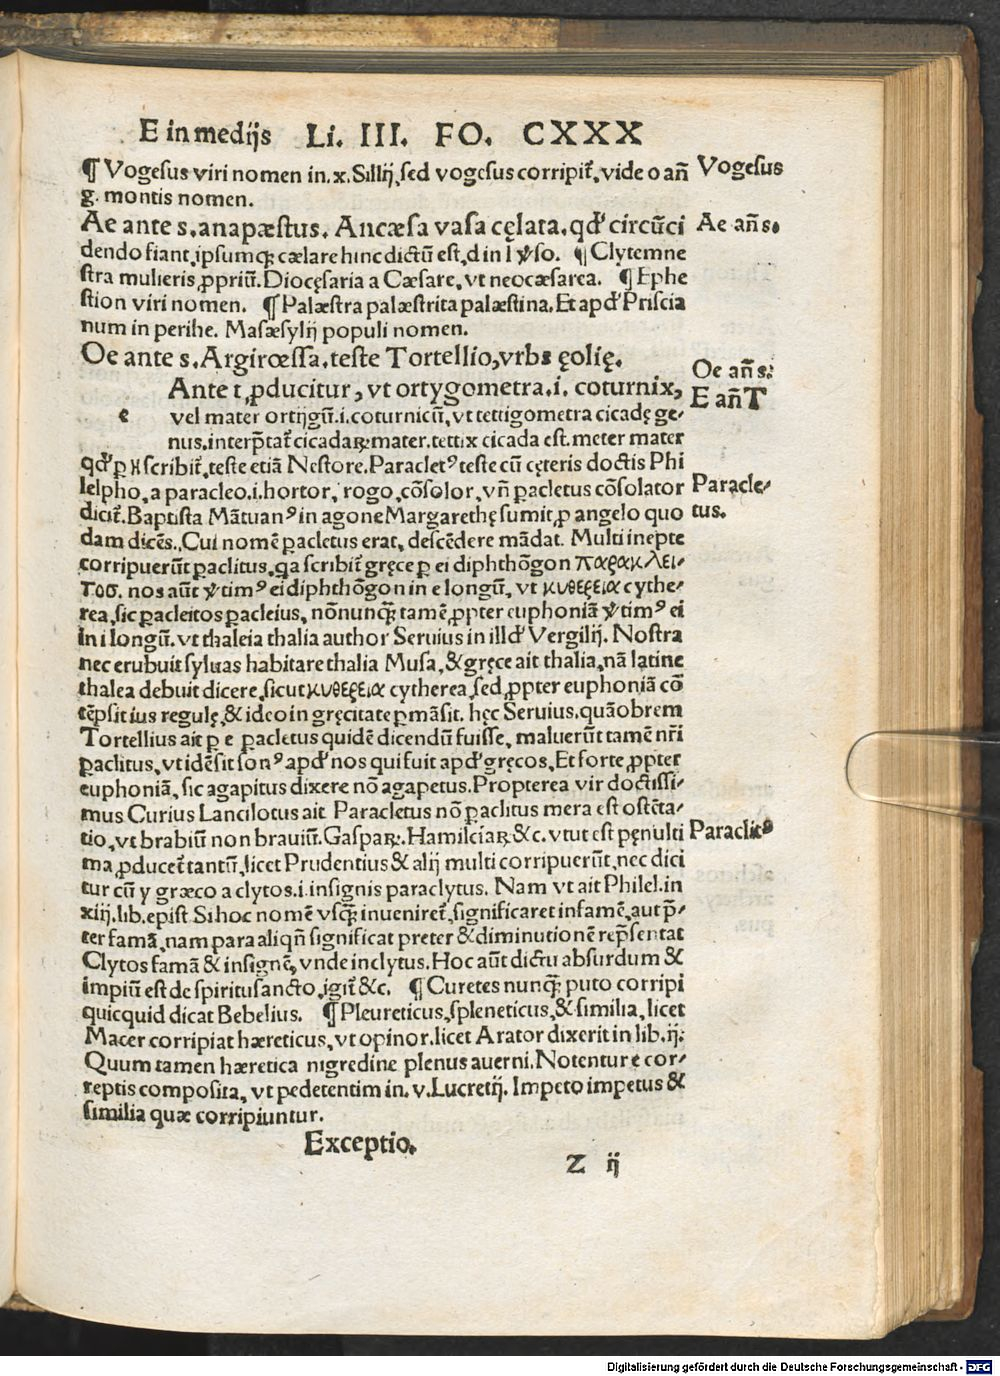 E in medijs Li. III. FO. CXXX
¶ Vogesus viri nomen in. x. Sillij, sed vogesus corripit᷑, vide o añ
Vogesus
g. montis nomen.
Ae ante s, anapæstus. Ancæsa vasa cęlata. qđ circũci
Ae añ s.
dendo fiant, ipsumqꝫ cælare hinc dictũ est, d in l ꝟso. ¶ Clytemne
stra mulieris ꝓpriũ. Diocęsaria a Cæsare, vt neocæsarea. ¶ Ephe
stion viri nomen. ¶ Palæstra palæstrita palæstina. Et apđ Priscia
num in perihe. Masæsylij populi nomen.
Oe ante s. Argiroessa, teste Tortellio, vrbs ęolię.
Oe añ s.
Ante t, ꝓducitur, vt ortygometra. i. coturnix,
E añ T
e vel mater ortijgũ. i. coturnicũ, vt tettigometra cicadę ge-
nus, interp̃tat᷑ cicadaꝝ mater. tettix cicada est. meter mater
qđ ꝑ η scribit᷑, teste etiã Nestore. Paracletꝰ teste cũ cęteris doctis Phi
lelpho, a paracleo. i. hortor, rogo, cõsolor, vñ ꝑacletus cõsolator
Paracle-
dicit᷑. Baptista Mãtuanꝰ in agone Margarethę sumit, ꝑ angelo quo
tus.
dam dicẽs, Cui nomẽ ꝑacletus erat, descẽdere mãdat. Multi inepte
corripuerũt ꝑaclitus, qa scribit᷑ gręce ꝑ ei diphthõgon παρακλει-
τοσ. nos aũt ꝟtimꝰ ei diphthõgon in e longũ, vt κυθερεια cythe-
rea, sic ꝑacleitos ꝑacleius, nõnunqꝫ tamẽ ꝓpter euphoniã ꝟtimꝰ ei
in i longũ. vt thaleia thalia author Seruius in illđ Vergilij. Nostra
nec erubuit syluas habitare thalia Musa, & gręce ait thalia, nã latine
thalea debuit dicere, sicut κυθερεια cytherea, sed, ꝓpter euphoniã cõ
tẽpsit ius regulę, & ideo in gręcitate ꝑmãsit. hęc Seruius. quãobrem
Tortellius ait ꝑ e ꝑacletus quidẽ dicendũ fuisse, maluerũt tamẽ nr̃i
ꝑaclitus, vt idẽ sit sonꝰ apđ nos qui fuit apđ gręcos. Et forte ꝓpter
euphoniã, sic agapitus dixere nõ agapetus. Propterea vir doctissi-
mus Curius Lancilotus ait Paracletus nõ ꝑaclitus mera est ostẽta-
tio, vt brabiũ non brauiũ. Gaspaꝝ. Hamilciaꝝ &c. vtut est pęnulti
Paraclitꝰ
ma, ꝓducet᷑ tantũ, licet Prudentius & alij multi corripuerũt, nec dici
tur cũ y græco a clytos. i. insignis paraclytus. Nam vt ait Philel. in
xiij. lib. epist. Si hoc nomẽ vsqꝫ inueniret᷑, significaret infamẽ, aut p̃-
ter famã, nam para aliqñ significat preter & diminutionẽ rep̃sentat
Clytos famã & insignẽ, vnde inclytus. Hoc aũt dictu absurdum &
impiũ est de spiritu sancto, igit᷑ &c. ¶ Curetes nunqꝫ puto corripi
quicquid dicat Bebelius. ¶ Pleureticus, spleneticus, & similia, licet
Macer corripiat hæreticus, vt opinor. licet Arator dixerit in lib. ij:
Quum tamen hæretica nigredine plenus auerni. Notentur e cor-
reptis composita, vt pedetentim in. v. Lucretij. Impeto impetus &
similia quæ corripiuntur.
Exceptio.
Z ij
Digitalisierung gefördert durch die Deutsche Forschungsgemeinschaft - DFG